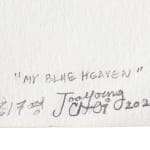 "MY BLUE HEAVEN"
JooYoung
Choi 202